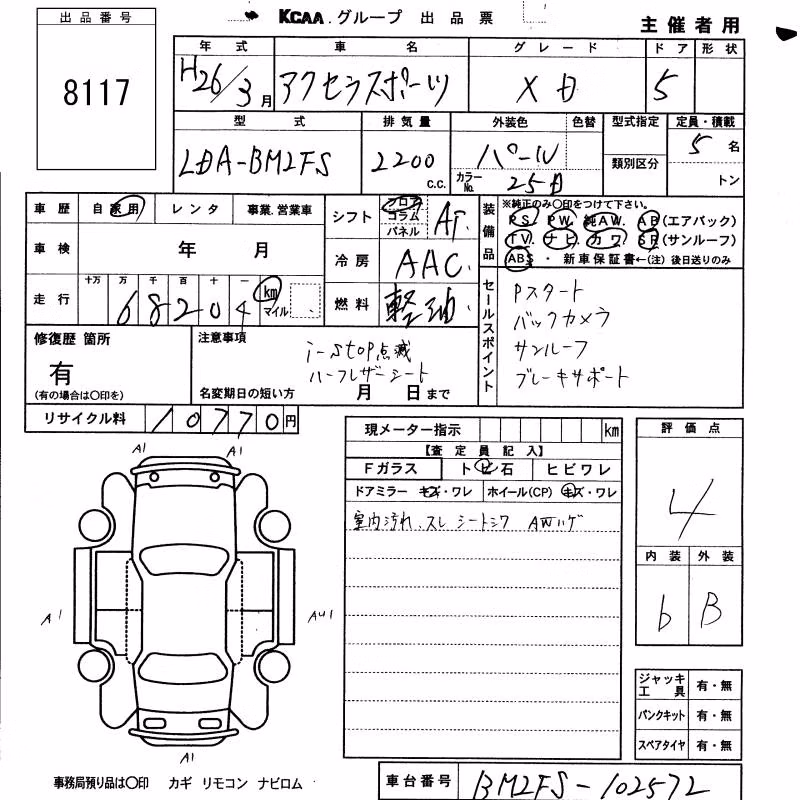 出品番号
8117
KCAA.グループ 出品票
主催者用
年式 車名 グレード ドア 形状
H26/3月 アクセラスポーツ XD 5
型式 排気量 外装色 色替 型式指定 定員・積載
LDA-BM2FS 2200 c.c. パール カラーNo. 25D 類別区分 5名 トン
車歴 自家用 レンタ 事業.営業車
車検 年 月
走行 十万 万 千 百 十 一
68204 km マイル
シフト フロア コラム パネル AT.
冷房 AAC.
燃料 軽油.
装備品
※純正のみ○印をつけて下さい。
PS. PW. 純AW. AB(エアバック)
TV. ナビ. カワ. SR(サンルーフ)
ABS ・ 新車保証書←(注) 後日送りのみ
セールスポイント
Pスタート
バックカメラ
サンルーフ
ブレーキサポート
修復歴 箇所
有
(有の場合は○印を)
注意事項
i-stop点滅
ハーフレザーシート
名変期日の短い方 月 日まで
リサイクル料 10770円
現メーター指示 km
【査定員記入】
Fガラス トビ石 ヒビワレ
ドアミラー キズ・ワレ ホイール(CP) キズ・ワレ
室内汚れ、スレ シートシワ AWハゲ
評価点
4
内装 外装
b B
ジャッキ工具 有・無
パンクキット 有・無
スペアタイヤ 有・無
A1 A1
A1 AU1
A1
事務局預り品は○印 カギ リモコン ナビロム
車台番号 BM2FS-102572